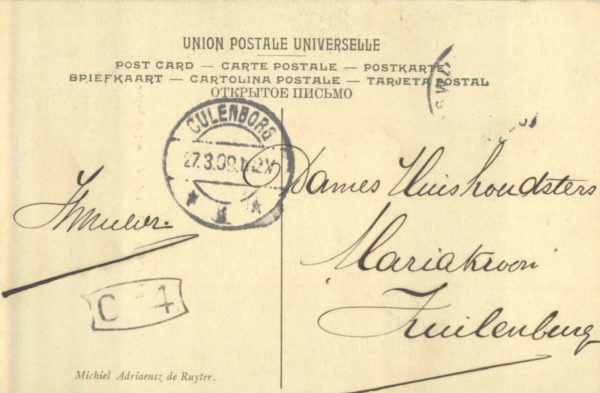 UNION POSTALE UNIVERSELLE
POST CARD — CARTE POSTALE — POSTKARTE
BRIEFKAART — CARTOLINA POSTALE — TARJETA POSTAL
ОТКРЫТОЕ ПИСЬМО
CULENBORG
27.3.09.1
Dames Huishoudsters
Mariakroon
Kuilenburg
C 4
Michiel Adriaensz de Ruyter.